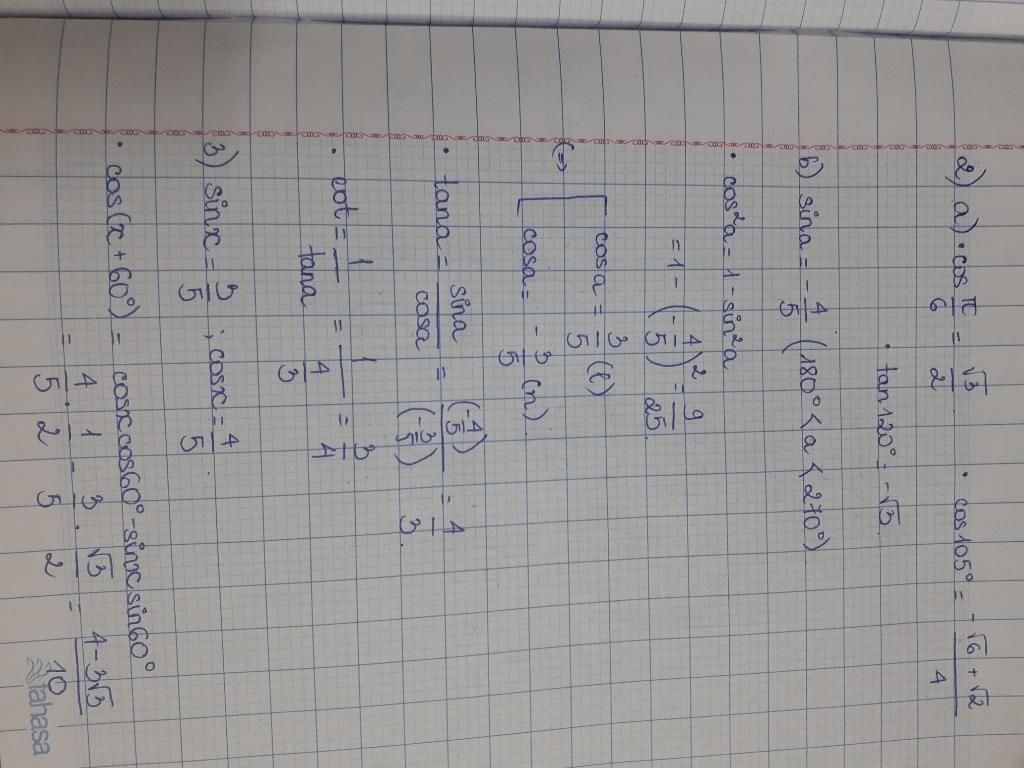 2) a) • cos π/6 = √3/2 • cos 105° = (-√6 + √2)/4
• tan 120° = -√3
b) sina = -4/5 (180° < a < 270°)
• cos²a = 1 - sin²a
= 1 - (-4/5)² = 9/25
(=> [ cosa = 3/5 (l)
cosa = -3/5 (n)
• tana = sina/cosa = (-4/5)/(-3/5) = 4/3
• cot = 1/tana = 1/(4/3) = 3/4
3) sinx = 3/5 ; cosx = 4/5.
• cos(x + 60°) = cosxcos60° - sinxsin60°
= 4/5 . 1/2 - 3/5 . √3/2 = (4 - 3√3)/10
Tahasa